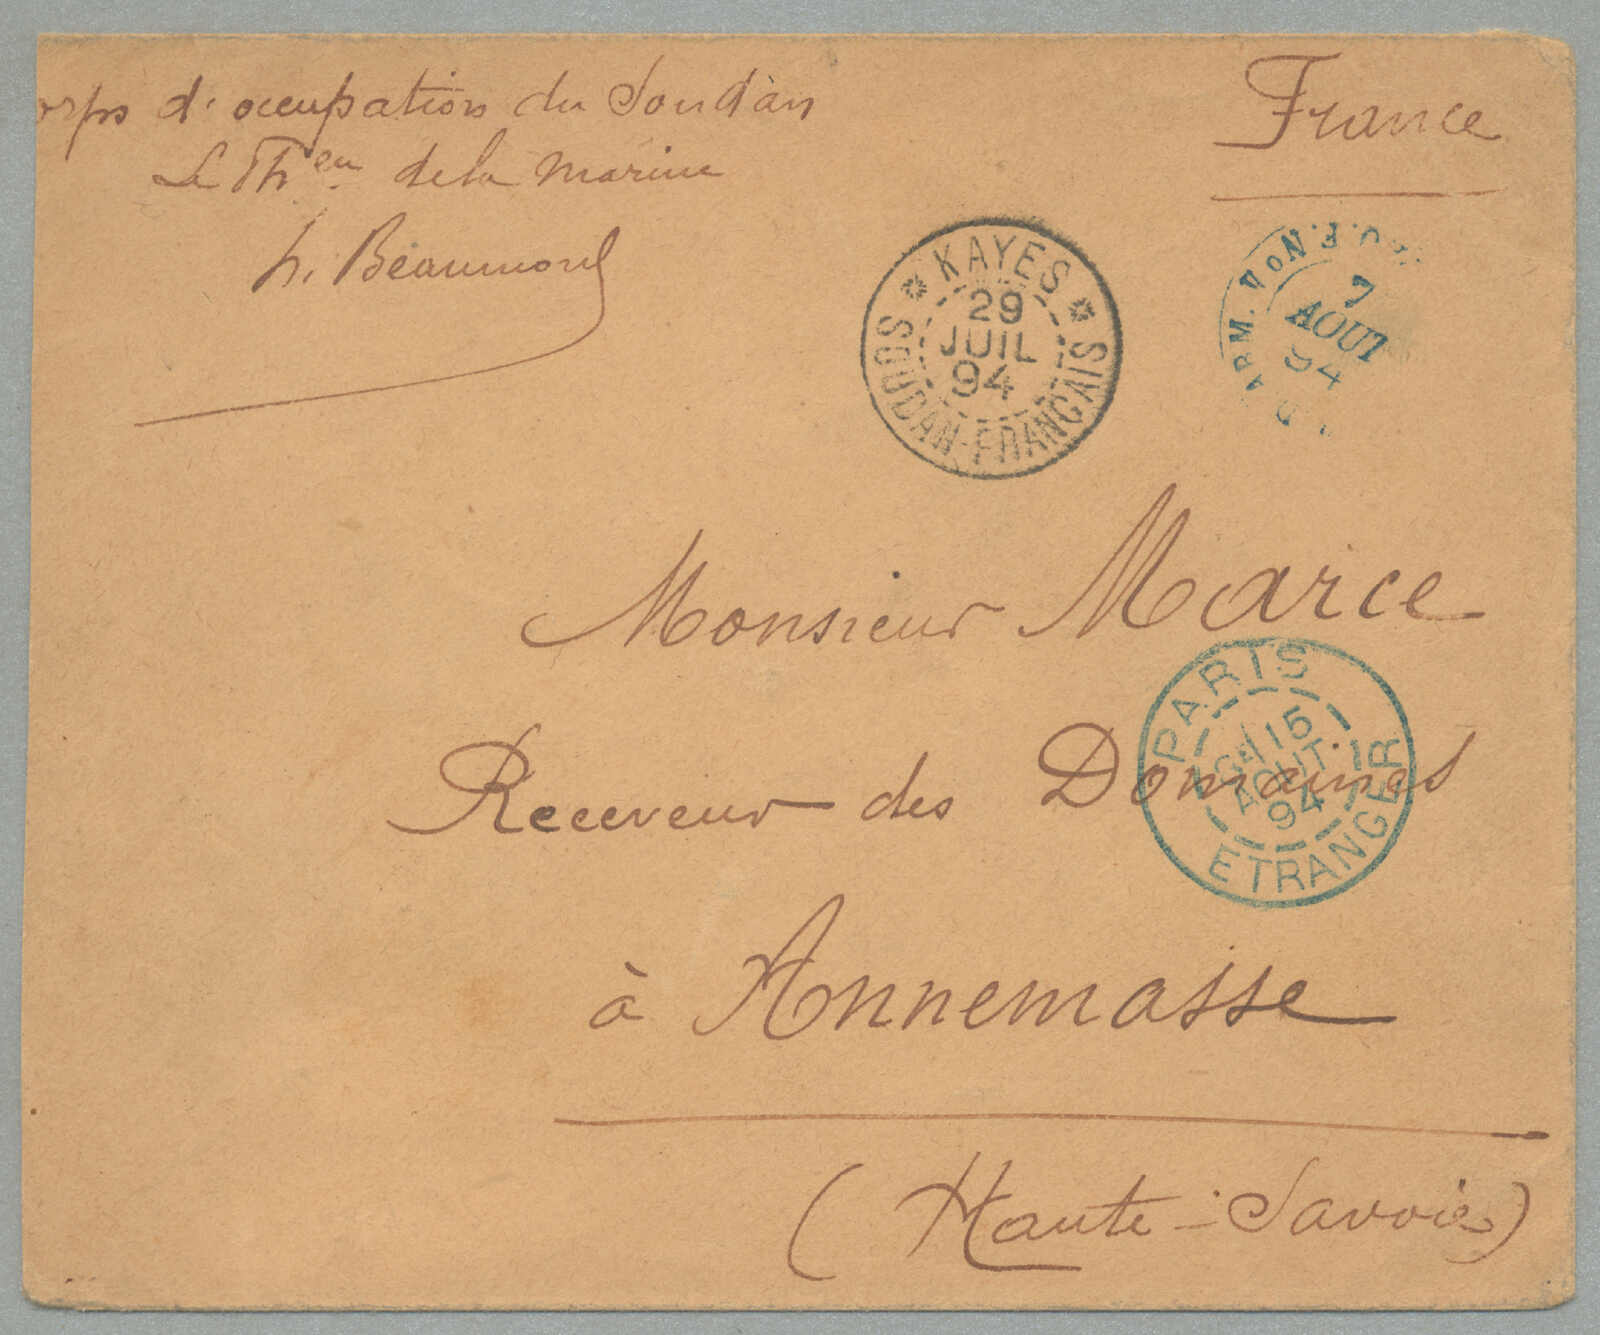 orps d'occupation du Soudan
France
de la marine
h. Beaumont
KAYES
29
JUIL
94
SOUDAN-FRANCAIS
7
AOUT
94
Monsieur Marce
Receveur des Domaines
PARIS
15
AOUT
94
ETRANGER
à Annemasse
(Haute-Savoie)